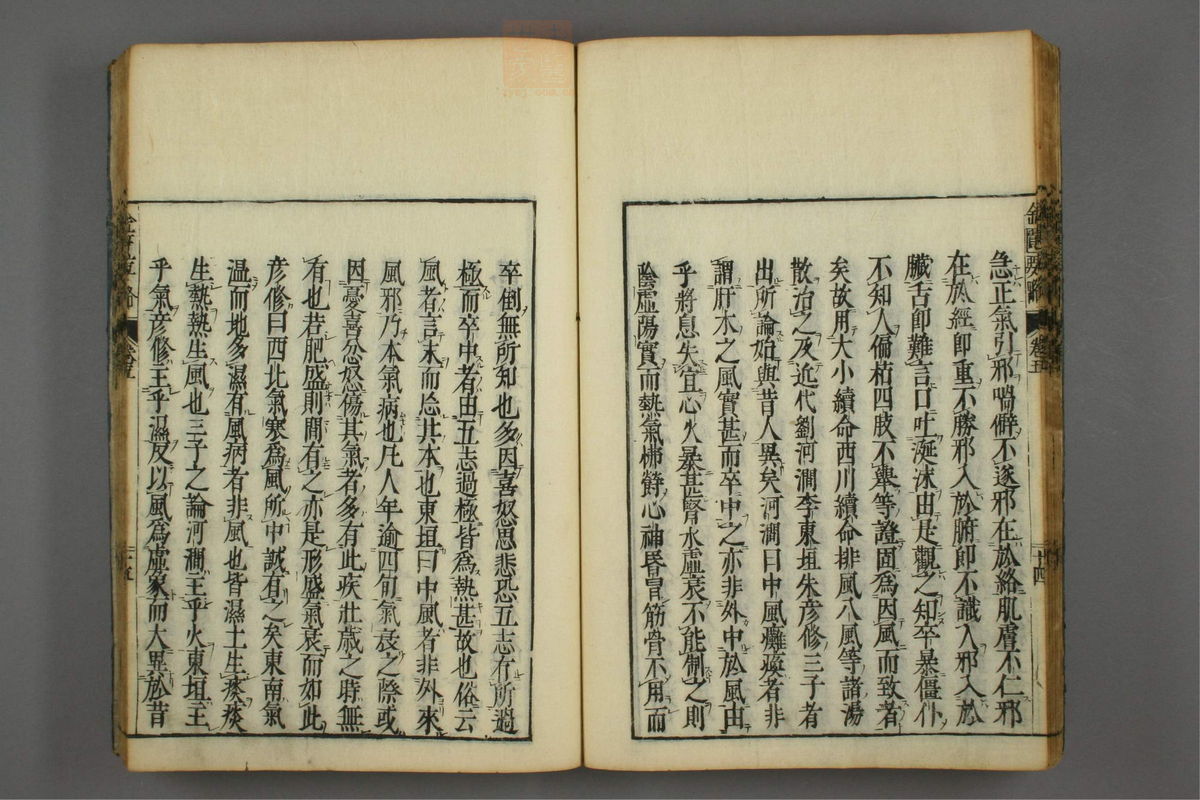 急正氣引邪喎僻不遂邪在於絡肌膚不仁邪
在於經即重不勝邪入於腑即不識人邪入於
臟舌即難言口吐涎沫由是觀之知卒暴僵仆
不知人偏枯四肢不舉等證固爲因風而致者
矣故用大小續命西川續命排風八風等諸湯
散治之及近代劉河澗李東垣朱彥修三子者
出所論始與昔人異矣河澗曰中風癱瘓者非
謂肝木之風實甚而卒中之亦非外中於風由
乎將息失宜心火暴甚腎水虛衰不能制之則
陰虛陽實而熱氣怫鬱心神昏冒筋骨不用而
卒倒無所知也多因喜怒思悲恐五志有所過
極而卒中者由五志過極皆爲熱甚故也俗云
風者言末而忘其本也東垣曰中風者非外來
風邪乃本氣病也凡人年逾四旬氣衰之際或
因憂喜忿怒傷其氣者多有此疾壯歲之時無
有也若肥盛則間有之亦是形盛氣衰而如此
彥修曰西北氣寒爲風所中誠有之矣東南氣
溫而地多濕有風病者非風也皆濕土生痰痰
生熱熱生風也三子之論河澗主乎火東垣主
乎氣彥修主乎濕反以風爲虛象而大異於昔
卷五
十四